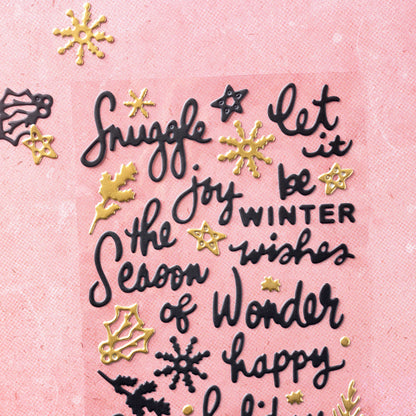 Snuggle
let
it
joy
be
WINTER
the
wishes
Season
of
Wonder
happy